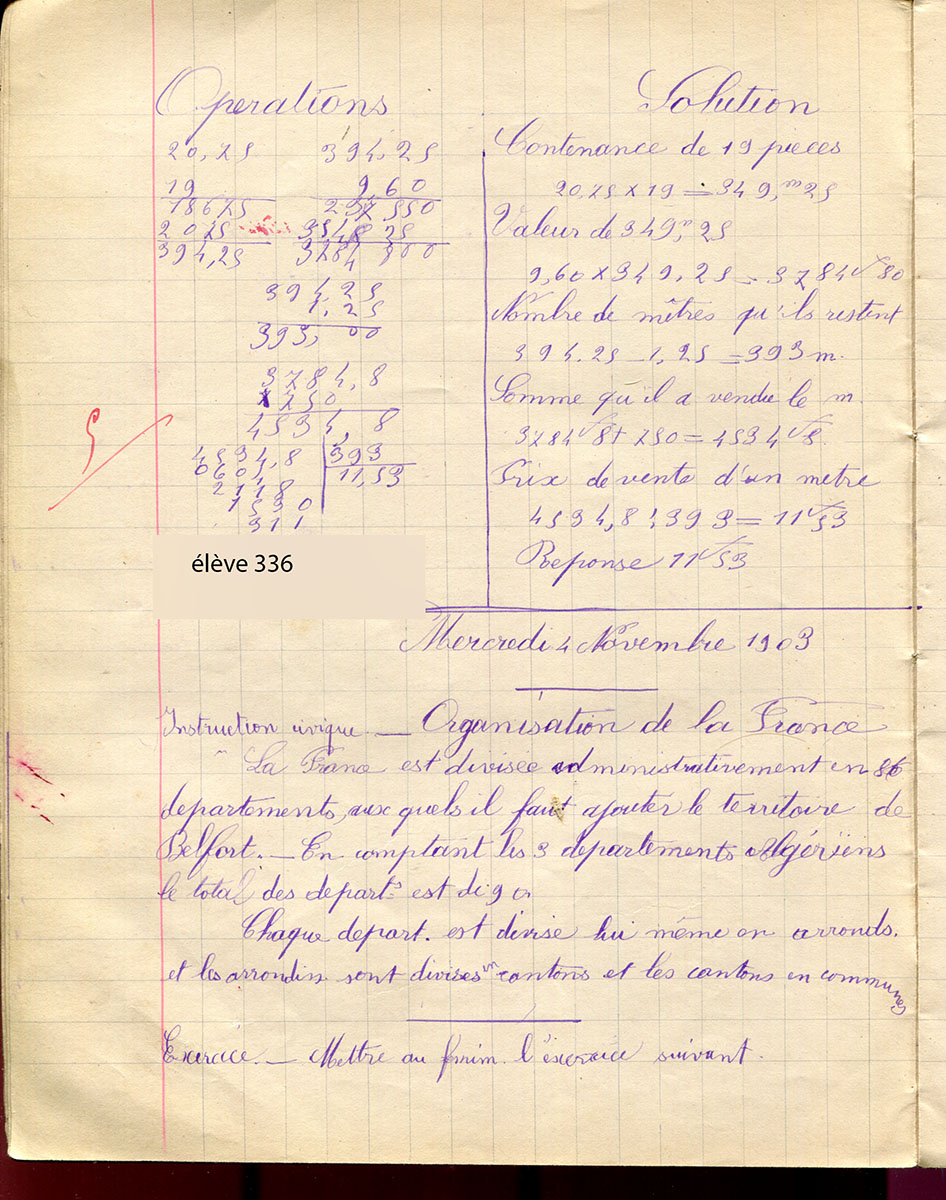 Operations
20,75
19
18675
2075
394,25
394,25
9,60
2365550
354825
3784800
394,25
1,25
393,00
3784,8
750
4534,8
4534,8 393
0604, 11,53
2118
1530
311
5
élève 336
Solution
Contenance de 19 pièces
20,75 x 19 = 349,m 25
Valeur de 349m, 25
9,60 x 349,25 = 3784f80
Nombre de mêtres qu'ils restent
394.25 - 1,25 = 393 m.
Somme qu'il a vendu le m.
3784f8 + 750 = 4534f8.
Prix de vente d'un metre
4534,8 : 393 = 11f53
Reponse 11f53
Mercredi 4 Novembre 1903
Instruction civique. — Organisation de la France
La France est divisée administrativement en 86
departements, aux quels il faut ajouter le territoire de
Belfort. — En comptant les 3 departements Algériens
le total des departs est de 90
Chaque depart. est divisé lui même en arronds.
et les arrondis sont divises en cantons et les cantons en communes
Exercice. — Mettre au fémin. l'exercice suivant.